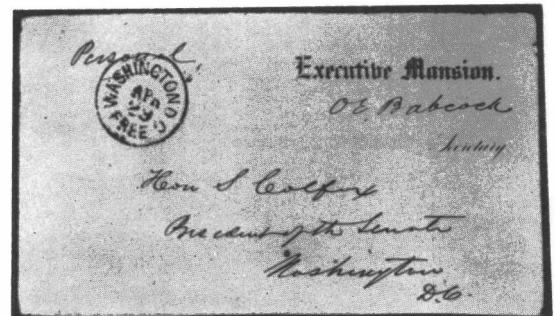 Personal.
WASHINGTON D.C.
APR
29
FREE
Executive Mansion.
O E. Babcock
Secretary
Hon S Colfax
President of the Senate
Washington
D.C.